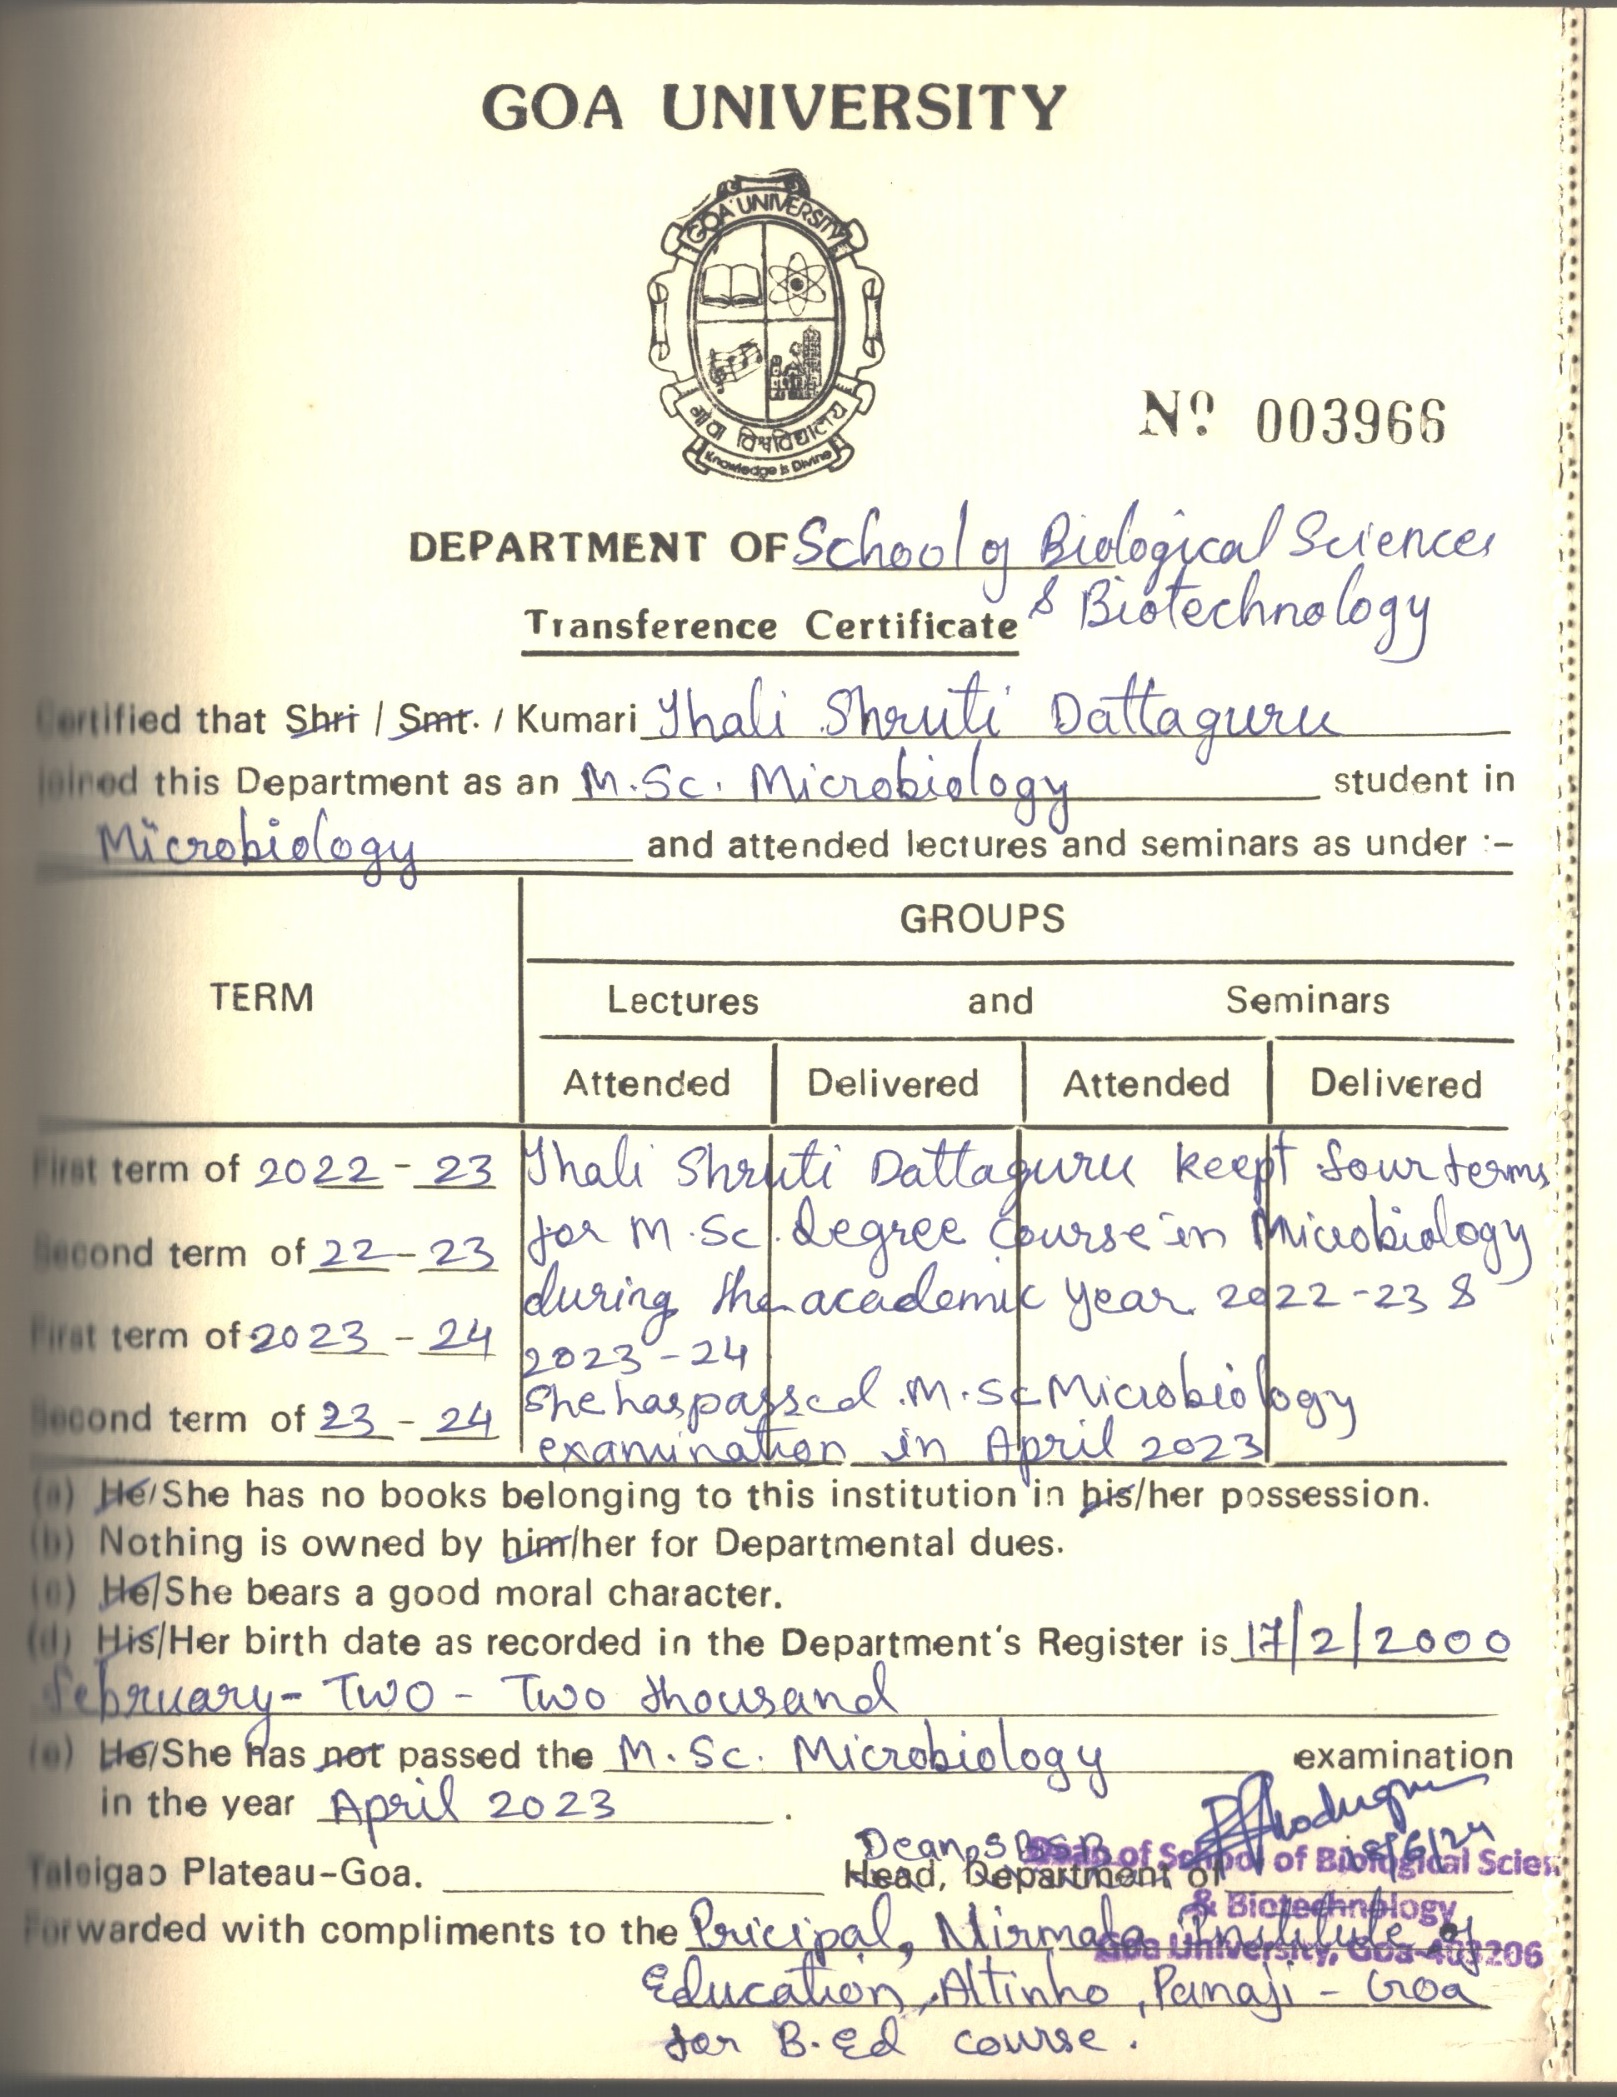 GOA UNIVERSITY
GOA UNIVERSITY
गोंय विश्वविद्यालय
Knowledge is Divine
Nº 003966
DEPARTMENT OF School of Biological Sciences
& Biotechnology
Transference Certificate
Certified that Shri / Smt. / Kumari Thali Shruti Dattaguru
Joined this Department as an M.Sc. Microbiology student in
Microbiology and attended lectures and seminars as under :-
GROUPS
TERM Lectures and Seminars
Attended Delivered Attended Delivered
First term of 2022 - 23 Thali Shruti Dattaguru keept four terms
Second term of 22 - 23 for M.Sc. degree course in Microbiology
during the academic year 2022-23 &
First term of 2023 - 24 2023-24
Second term of 23 - 24 She has passed M.Sc Microbiology
examination in April 2023
(a) He/She has no books belonging to this institution in his/her possession.
(b) Nothing is owned by him/her for Departmental dues.
(c) He/She bears a good moral character.
(d) His/Her birth date as recorded in the Department's Register is 17/2/2000
February - Two - Two thousand
(e) He/She has not passed the M.Sc. Microbiology examination
in the year April 2023 .
Dean, SBSB
18/6/24
Dean of School of Biological Scien
Taleigao Plateau-Goa. Head, Department of
& Biotechnology
Forwarded with compliments to the Pricipal, Nirmala Institute of
Goa University, Goa-403206
Education, Altinho, Panaji - Goa
for B.Ed course.